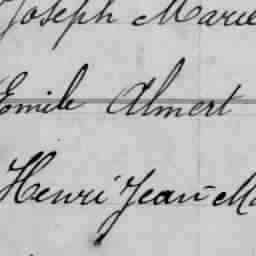 Joseph Marie
Emile Almert
Henri Jean-Ma